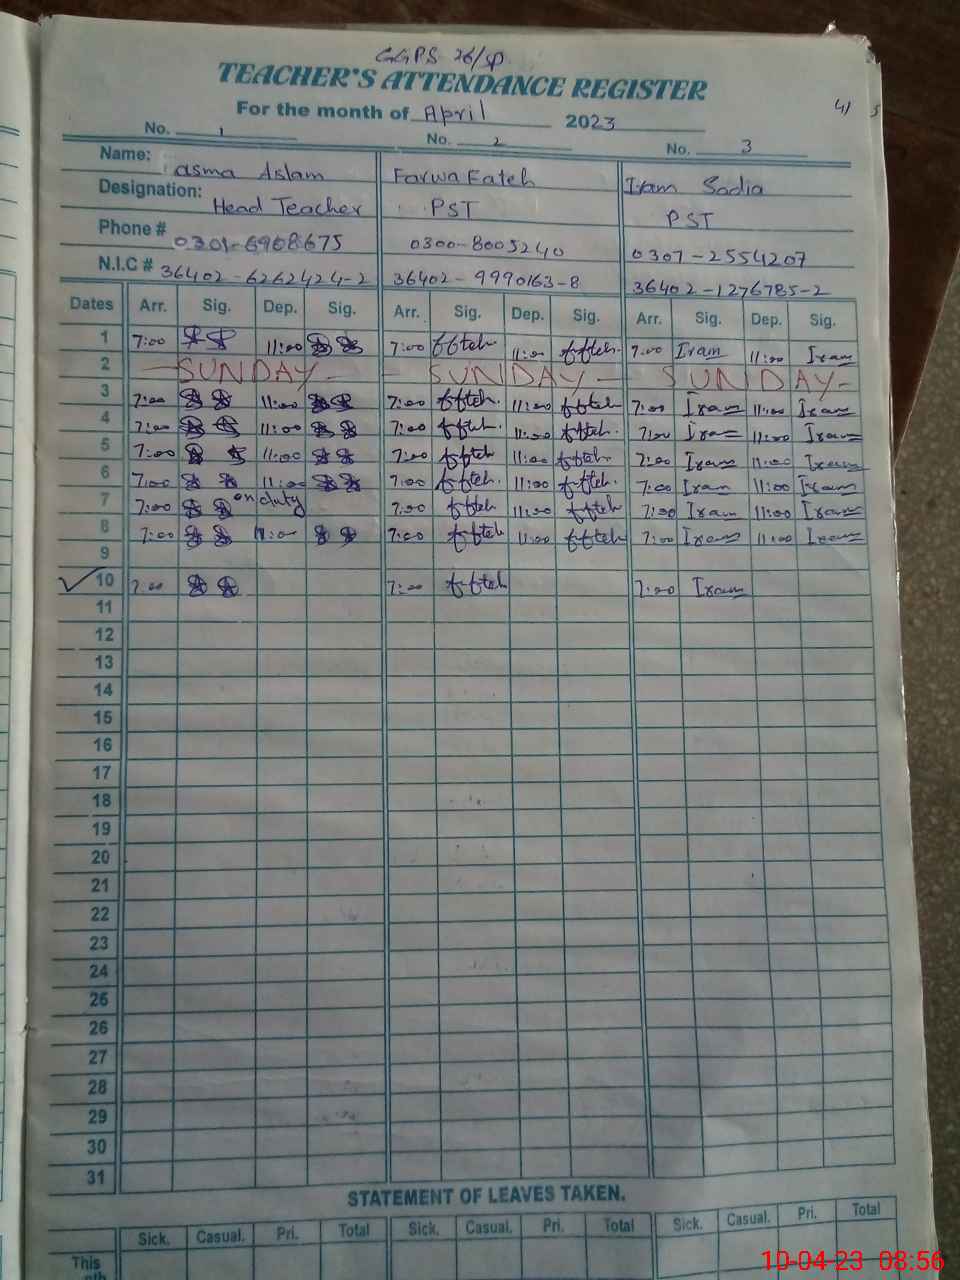 GGPS 26/SP
TEACHER'S ATTENDANCE REGISTER
For the month of April 2023
41
No. 1 No. 2 No. 3
Name: asma Aslam Farwa Fateh Iram Sadia
Designation: Head Teacher PST PST
Phone # 0301-6968675 0300-8005240 0307-2554207
N.I.C # 36402-6262424-2 36402-9990163-8 36402-1276785-2
Dates Arr. Sig. Dep. Sig. Arr. Sig. Dep. Sig. Arr. Sig. Dep. Sig.
1 7:00 11:00 7:00 ffteh 11:00 ffteh. 7:00 Iram 11:00 Iram
2 -SUNDAY- -SUNDAY- -SUNDAY-
3 7:00 11:00 7:00 ffteh. 11:00 ffteh 7:00 Iram 11:00 Iram
4 7:00 11:00 7:00 ffteh. 11:00 ffteh. 7:00 Iram 11:00 Iram
5 7:00 11:00 7:00 ffteh 11:00 ffteh. 7:00 Iram 11:00 Iram
6 7:00 11:00 7:00 ffteh. 11:00 ffteh. 7:00 Iram 11:00 Iram
7 7:00 on duty 7:00 ffteh 11:00 ffteh 7:00 Iram 11:00 Iram
8 7:00 11:00 7:00 ffteh 11:00 ffteh 7:00 Iram 11:00 Iram
9
10 7:00 7:00 ffteh 7:00 Iram
11
12
13
14
15
16
17
18
19
20
21
22
23
24
26
26
27
28
29
30
31
STATEMENT OF LEAVES TAKEN.
Sick. Casual. Pri. Total Sick. Casual. Pri. Total Sick. Casual. Pri. Total
This
10-04-23 08:56